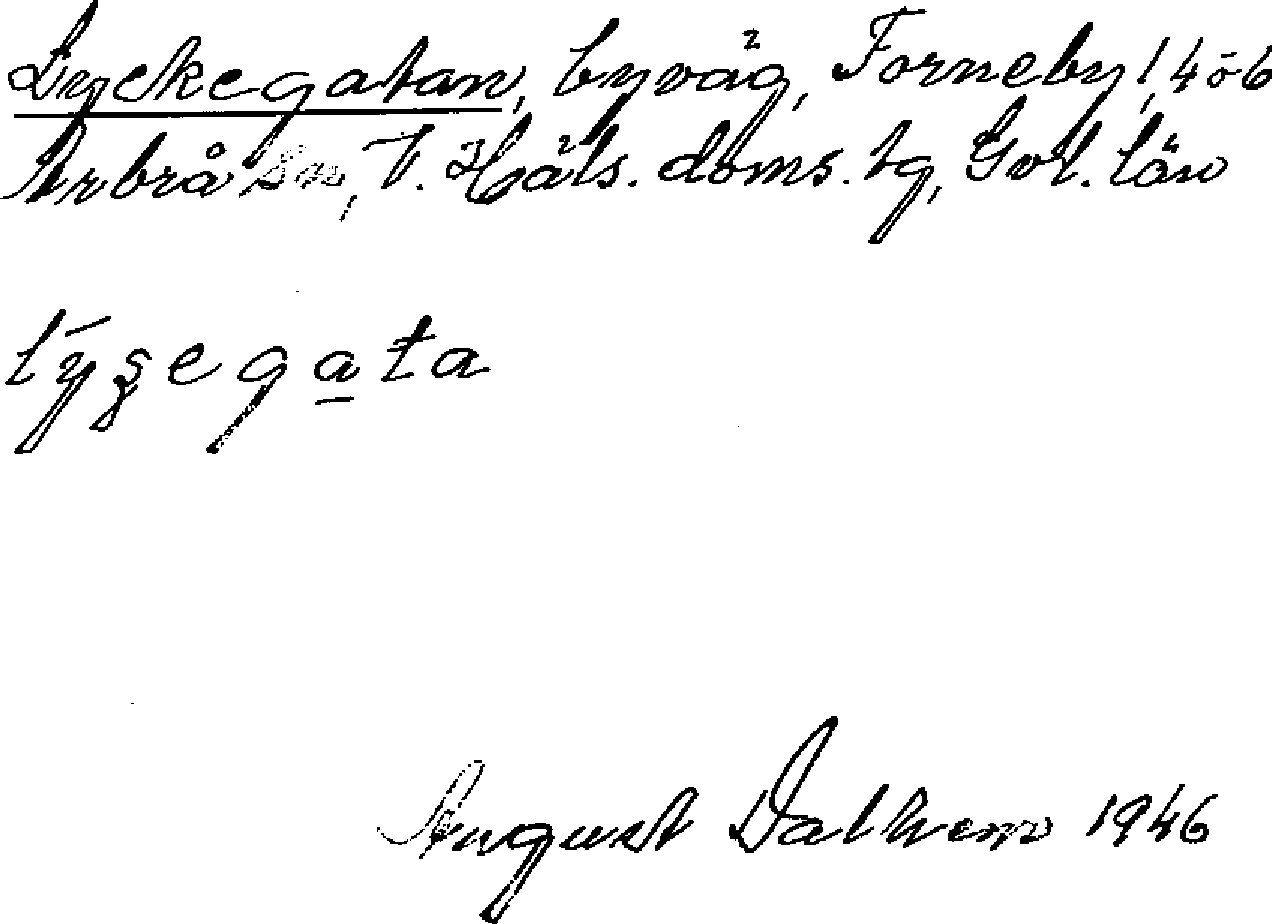 Lyckegatan, byväg, Forneby 1, 4 o 6
Arbrå sn, V. Häls. doms. tg, Gvl. län
týʂegata
August Dalhem 1946